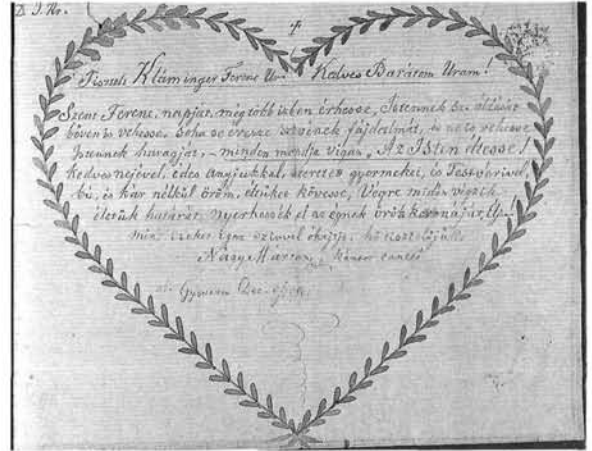 D. I. Kr.
Tisztelt Kláminger Ferenc Ur Kedves Barátom Uram!
Szent Ferenc, napját, még több izben érhesse, Istennek sz. áldását
bőven is vehesse, Soha se érezze szivének fájdalmát, se ne is vehesse
Istennek haragját, – minden mondja vigan, Az Isten éltesse!
kedves nejével, édes anyjukkal, szeretett gyermekei, és Testvérivel,
bú, és kár nélkül öröm, éltüket kövesse, Végre midőn végzik
életük határát, nyerhessék el az egnek örök koronáját
mind ezeket igaz szivvel óhajtja, hű tisztelőjük
Nagy Márton kántor tanitó
Dec.